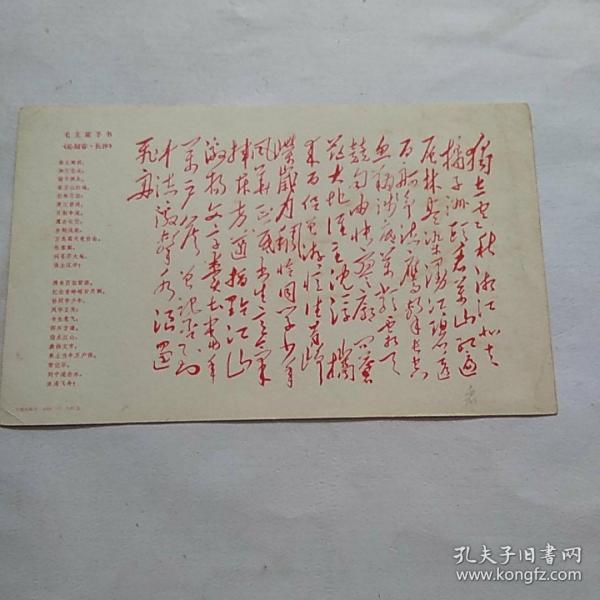 毛主席手书
《沁园春·长沙》
独立寒秋，
湘江北去，
橘子洲头。
看万山红遍，
层林尽染；
漫江碧透，
百舸争流。
鹰击长空，
鱼翔浅底，
万类霜天竞自由。
怅寥廓，
问苍茫大地，
谁主沉浮？
携来百侣曾游，
忆往昔峥嵘岁月稠。
恰同学少年，
风华正茂；
书生意气，
挥斥方遒。
指点江山，
激扬文字，
粪土当年万户侯。
曾记否，
到中流击水，
浪遏飞舟？
獨立寒秋 湘江北去
橘子洲頭 看萬山紅遍
层林尽染 漫江碧透
百舸争流 鷹擊長空
魚翔浅底 萬類霜天
競自由 怅寥廓 問蒼
茫大地 誰主沈浮 攜
来百侣曾游 憶往昔崢
嶸歲月稠 恰同学少年
風華正茂 書生意氣
揮斥方遒 指點江山
激揚文字 糞土當年
萬户侯 曾記否 到
中流擊水 浪遏
飛舟
孔夫子旧书网
www.kongfz.com